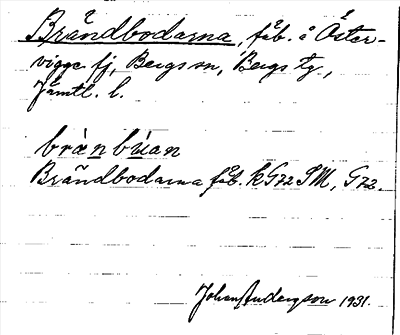 Brändbodarna, fäb. å Öster-
vigge fj, Bergs sn, Bergs tg,
Jämtl. l.
brànbúan
Brändbodarna fåb. kG72 SM, G72.
Johan Anderson 1931.